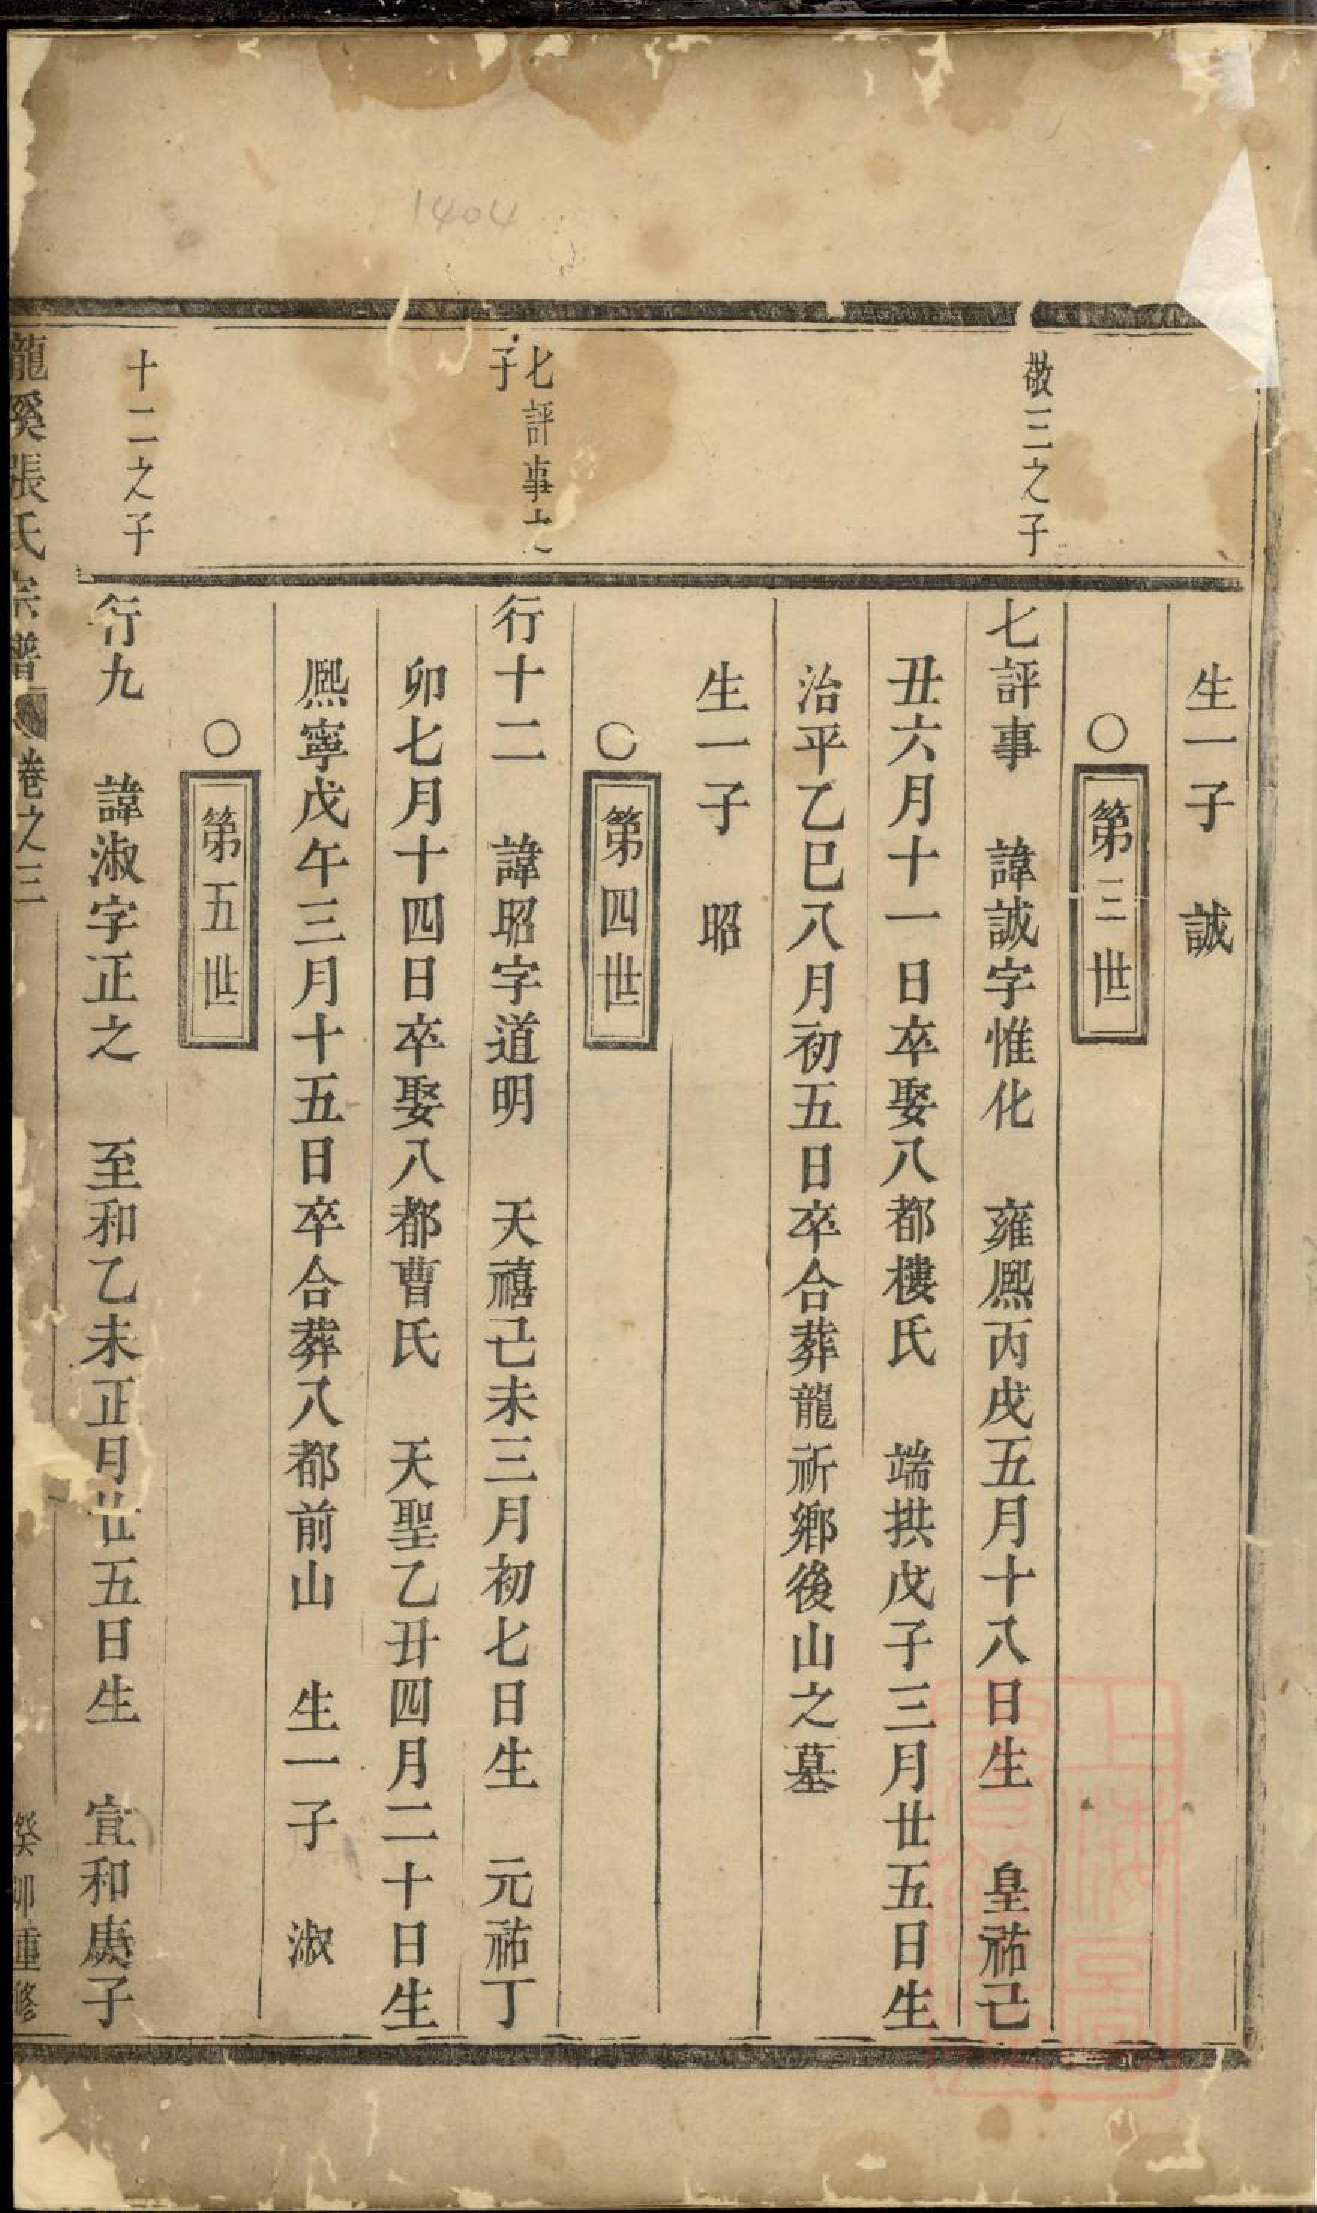 1404
生一子　誠
○第三世
敬三之子
七評事　諱誠字惟化　雍熈丙戌五月十八日生　皇祐己
丑六月十一日卒娶八都樓氏　端拱戊子三月廿五日生
治平乙巳八月初五日卒合葬龍祈鄉後山之墓
生一子　昭
○第四世
七評事之
子
行十二　諱昭字道明　天禧己未三月初七日生　元祐丁
卯七月十四日卒娶八都曹氏　天聖乙丑四月二十日生
熈寧戊午三月十五日卒合葬八都前山　生一子　淑
○第五世
十二之子
行九　諱淑字正之　至和乙未正月廿五日生　宣和庚子
龍溪張氏宗譜　卷之三　癸卯重修